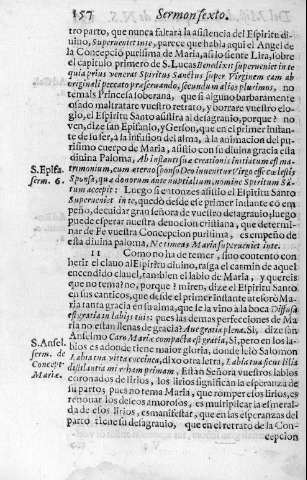 157 Sermon sexto.
tro parto, que nunca faltará la asistencia del Espíritu di-
uino, Superueniet in te, parece que habla aqui el Angel de
la Concepcion purissima de Maria, assilo siente Lira, sobre
el capitulo primero de S. Lucas Benedixit superueniet in te
quia prius venerat Spiritus Sanctus super Virginem eam ab
originali peccato præseruando, secundum alios plurimos, no
temals Princesa soberana, que si alguno barbaramente
osado maltratare vuestro retrato, y borrare vuestro elo-
gio, el Espiritu Santo assistira al desagrauio, porque? no
ven, dize san Epifanio, y Gerson, que en el primer instan-
te de su ser, a la infusion del alma, à la animacion del pu-
rissimo cuerpo de Maria, assistio con su diuina gracia esta
diuina Paloma, Ab instanti suæ creationis initiatum est ma-
S. Epifa. trimonium, cum æterno sponso Deo inuenitur Virgo esse cœlestis
serm. 6. Sponsa, quæ donorum ante nuptialium, nomine Spiritum Sā-
ctum accepit: Luego si entonces assistio el Espiritu Santo
Superueniet in te, quedò desde esse primer instante cō em-
peño, de cuidar gran señora de vuestro desagrauio, luego
puede esperar nuestra deuocion cristiana, que determi-
nar de Fe vuestra Concepcion purissima, es empeño de
esta diuina paloma, Ne timeas Maria superueniet in te.
11 Como no ha de temer, sino contento con
herir el clauo al Espiritu diuino, rasga el carmin de aquel
encendido clauel, tambien el labio de Maria, y querrà
que no tema? no, porque? miren, dize el Espiritu Santo
en sus canticos, que desde el primer instante atesorò Ma-
ria tanta gracia en su alma, que le vino a la boca Diffusa
est gratia in labijs tuis: pues las demas perfecciones de Ma
ria no estan llenas de gracia? Aue gratia plena. Si, dize san
S. Ansel. Anselmo Caro Mariæ compacta est gratia, Si, pero en los la-
serm. de bios es adonde tiene mayor gloria, donde leiò Salomon
Concept. Labia tua vitta coccinea, dixo otra letra, Labia tua sicut lilia
Mariæ. distillantia mirrham primam, Están Señora vuestros labios
coronados de lirios, los lirios significan la esperança de
su parto; pues no tema Maria, que romper esos lirios, es
renouar los deseos amorosos, es multiplicar la esmeral-
da de esos lirios, es manifestar, que en las esperanzas del
parto tiene su desagrauio, que en el retrato de la Con-
cepcion